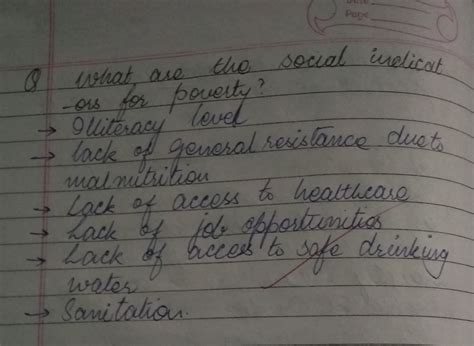 Page
Q what are the social indicat
-ors for poverty?
→ Illiteracy level
→ lack of general resistance due to
malnutrition
→ Lack of access to healthcare
→ Lack of job opportunities
→ Lack of access to safe drinking
water
→ Sanitation.